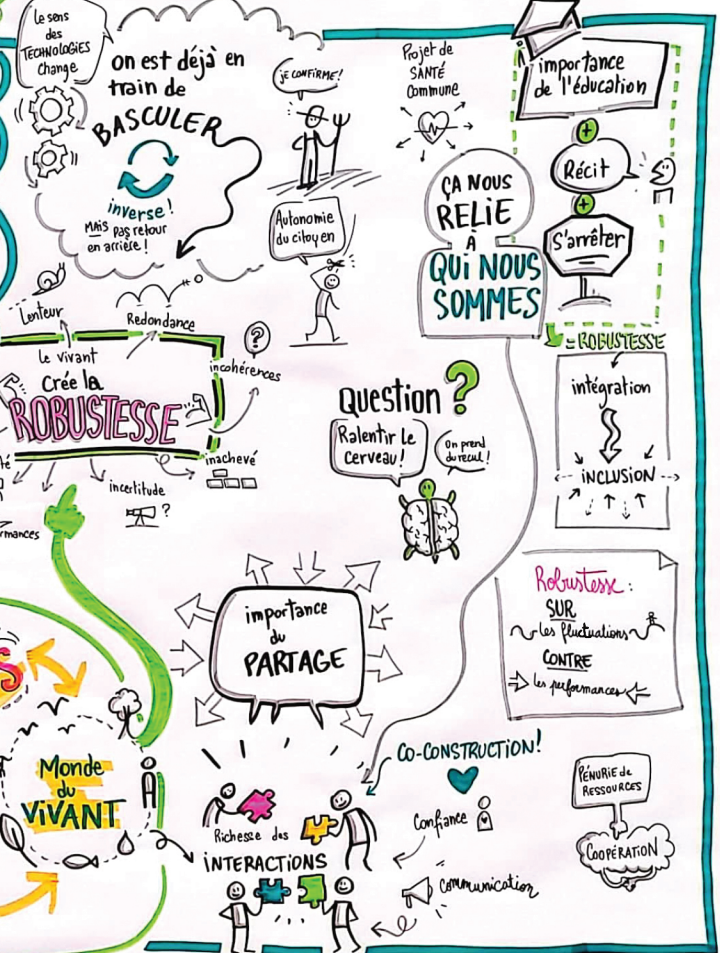 Le sens
des
TECHNOLOGIES
Change
on est déjà en
train de
BASCULER
inverse !
MAIS pas retour
en arrière !
je CONFIRME !
Autonomie
du citoyen
Projet de
SANTÉ
Commune
importance
de l'éducation
+
Récit
+
S'arrêter
= ROBUSTESSE
ÇA NOUS
RELIE
À
QUI NOUS
SOMMES
Lenteur
Redondance
Le vivant
Crée la
ROBUSTESSE
?
incohérences
inachevé
incertitude
?
rmances
Question ?
Ralentir Le
cerveau !
On prend
du recul !
intégration
INCLUSION
Robustesse :
SUR
les fluctuations
CONTRE
les performances
importance
du
PARTAGE
S
Monde
du
ViVANT
Richesse des
iNTERACTiONS
CO-CONSTRUCTION !
Confiance
Communication
PÉNURIE de
RESSOURCES
COOPÉRATION